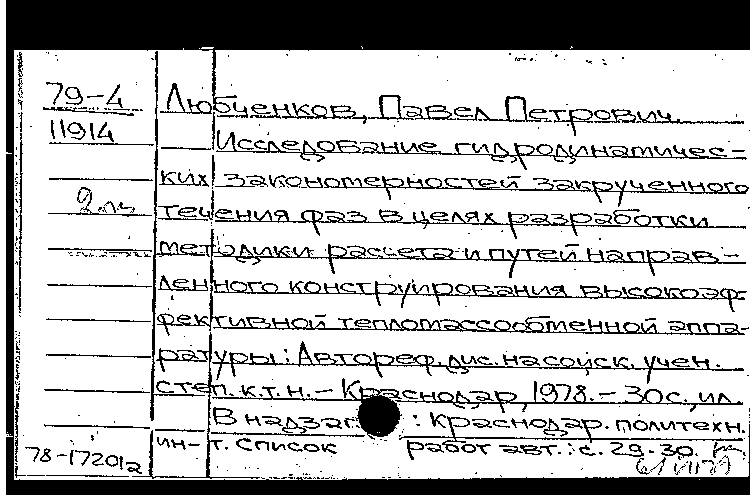 79-4 Любченков, Павел Петрович.
11914 Исследование гидродинамичес-
ких закономерностей закрученного
2 течения фаз в целях разработки
методики рассета и путей направ-
ленного конструирования высокоэф-
фективной тепломассообменной аппа-
ратуры: Автореф. дис. на соиск. учен.
степ. к.т.н. - Краснодар, 1978. - 30с., ил.
В надзаг : Краснодар. политехн.
ин-т. Список работ авт.: с. 29-30.
78-17201а